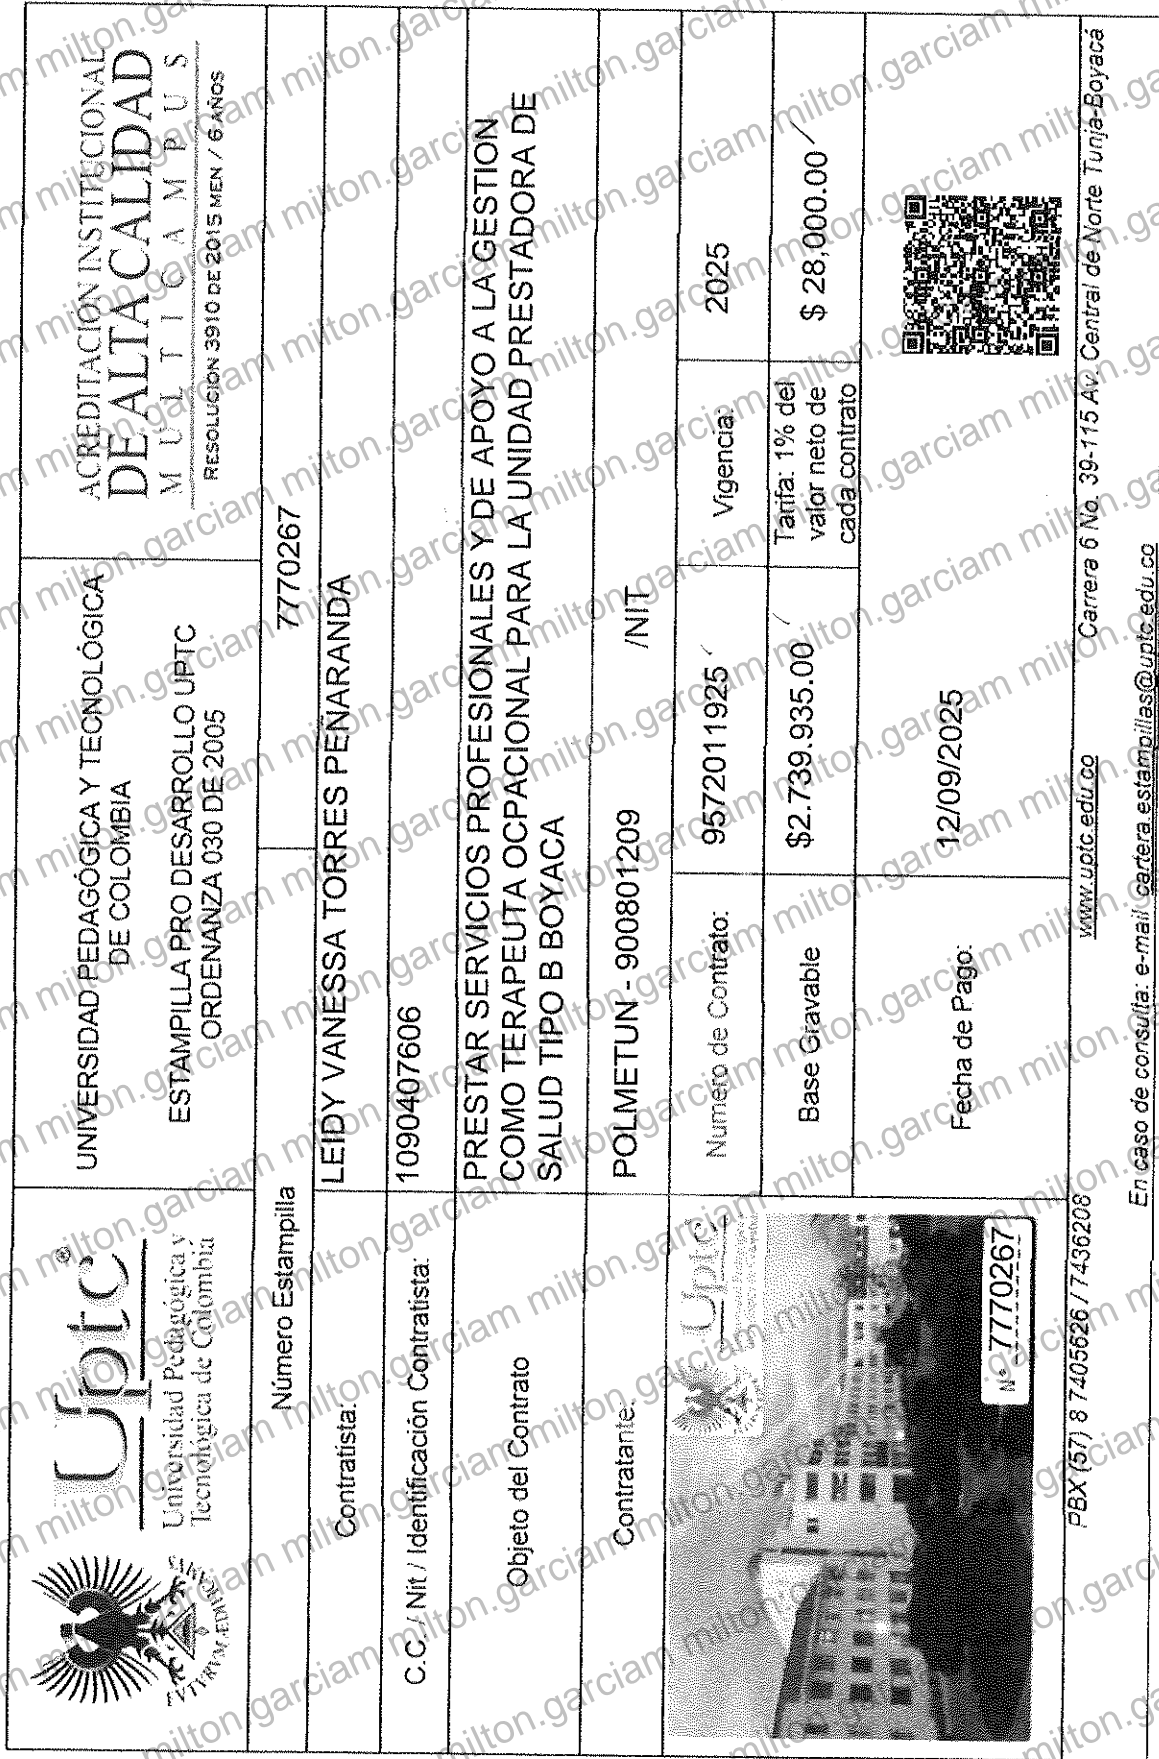 Uptc®
Universidad Pedagógica y
Tecnológica de Colombia
UNIVERSIDAD PEDAGÓGICA Y TECNOLÓGICA
DE COLOMBIA
ESTAMPILLA PRO DESARROLLO UPTC
ORDENANZA 030 DE 2005
ACREDITACIÓN INSTITUCIONAL
DE ALTA CALIDAD
MULTICAMPUS
RESOLUCIÓN 3910 DE 2015 MEN / 6 AÑOS
Número Estampilla 7770267
Contratista: LEIDY VANESSA TORRES PEÑARANDA
C.C. / Nit / Identificación Contratista: 1090407606
Objeto del Contrato
PRESTAR SERVICIOS PROFESIONALES Y DE APOYO A LA GESTION
COMO TERAPEUTA OCPACIONAL PARA LA UNIDAD PRESTADORA DE
SALUD TIPO B BOYACA
Contratante: POLMETUN - 900801209 /NIT
Uptc
N° 7770267
Numero de Contrato: 9572011925 Vigencia: 2025
Base Gravable $2.739.935.00 Tarifa: 1% del
valor neto de
cada contrato
$ 28,000.00
Fecha de Pago: 12/09/2025
PBX (57) 8 7405626 / 7436208 www.uptc.edu.co Carrera 6 No. 39-115 Av. Central de Norte Tunja-Boyacá
En caso de consulta: e-mail cartera.estampillas@uptc.edu.co
milton.garciam milton.garciam milton.garciam milton.garciam